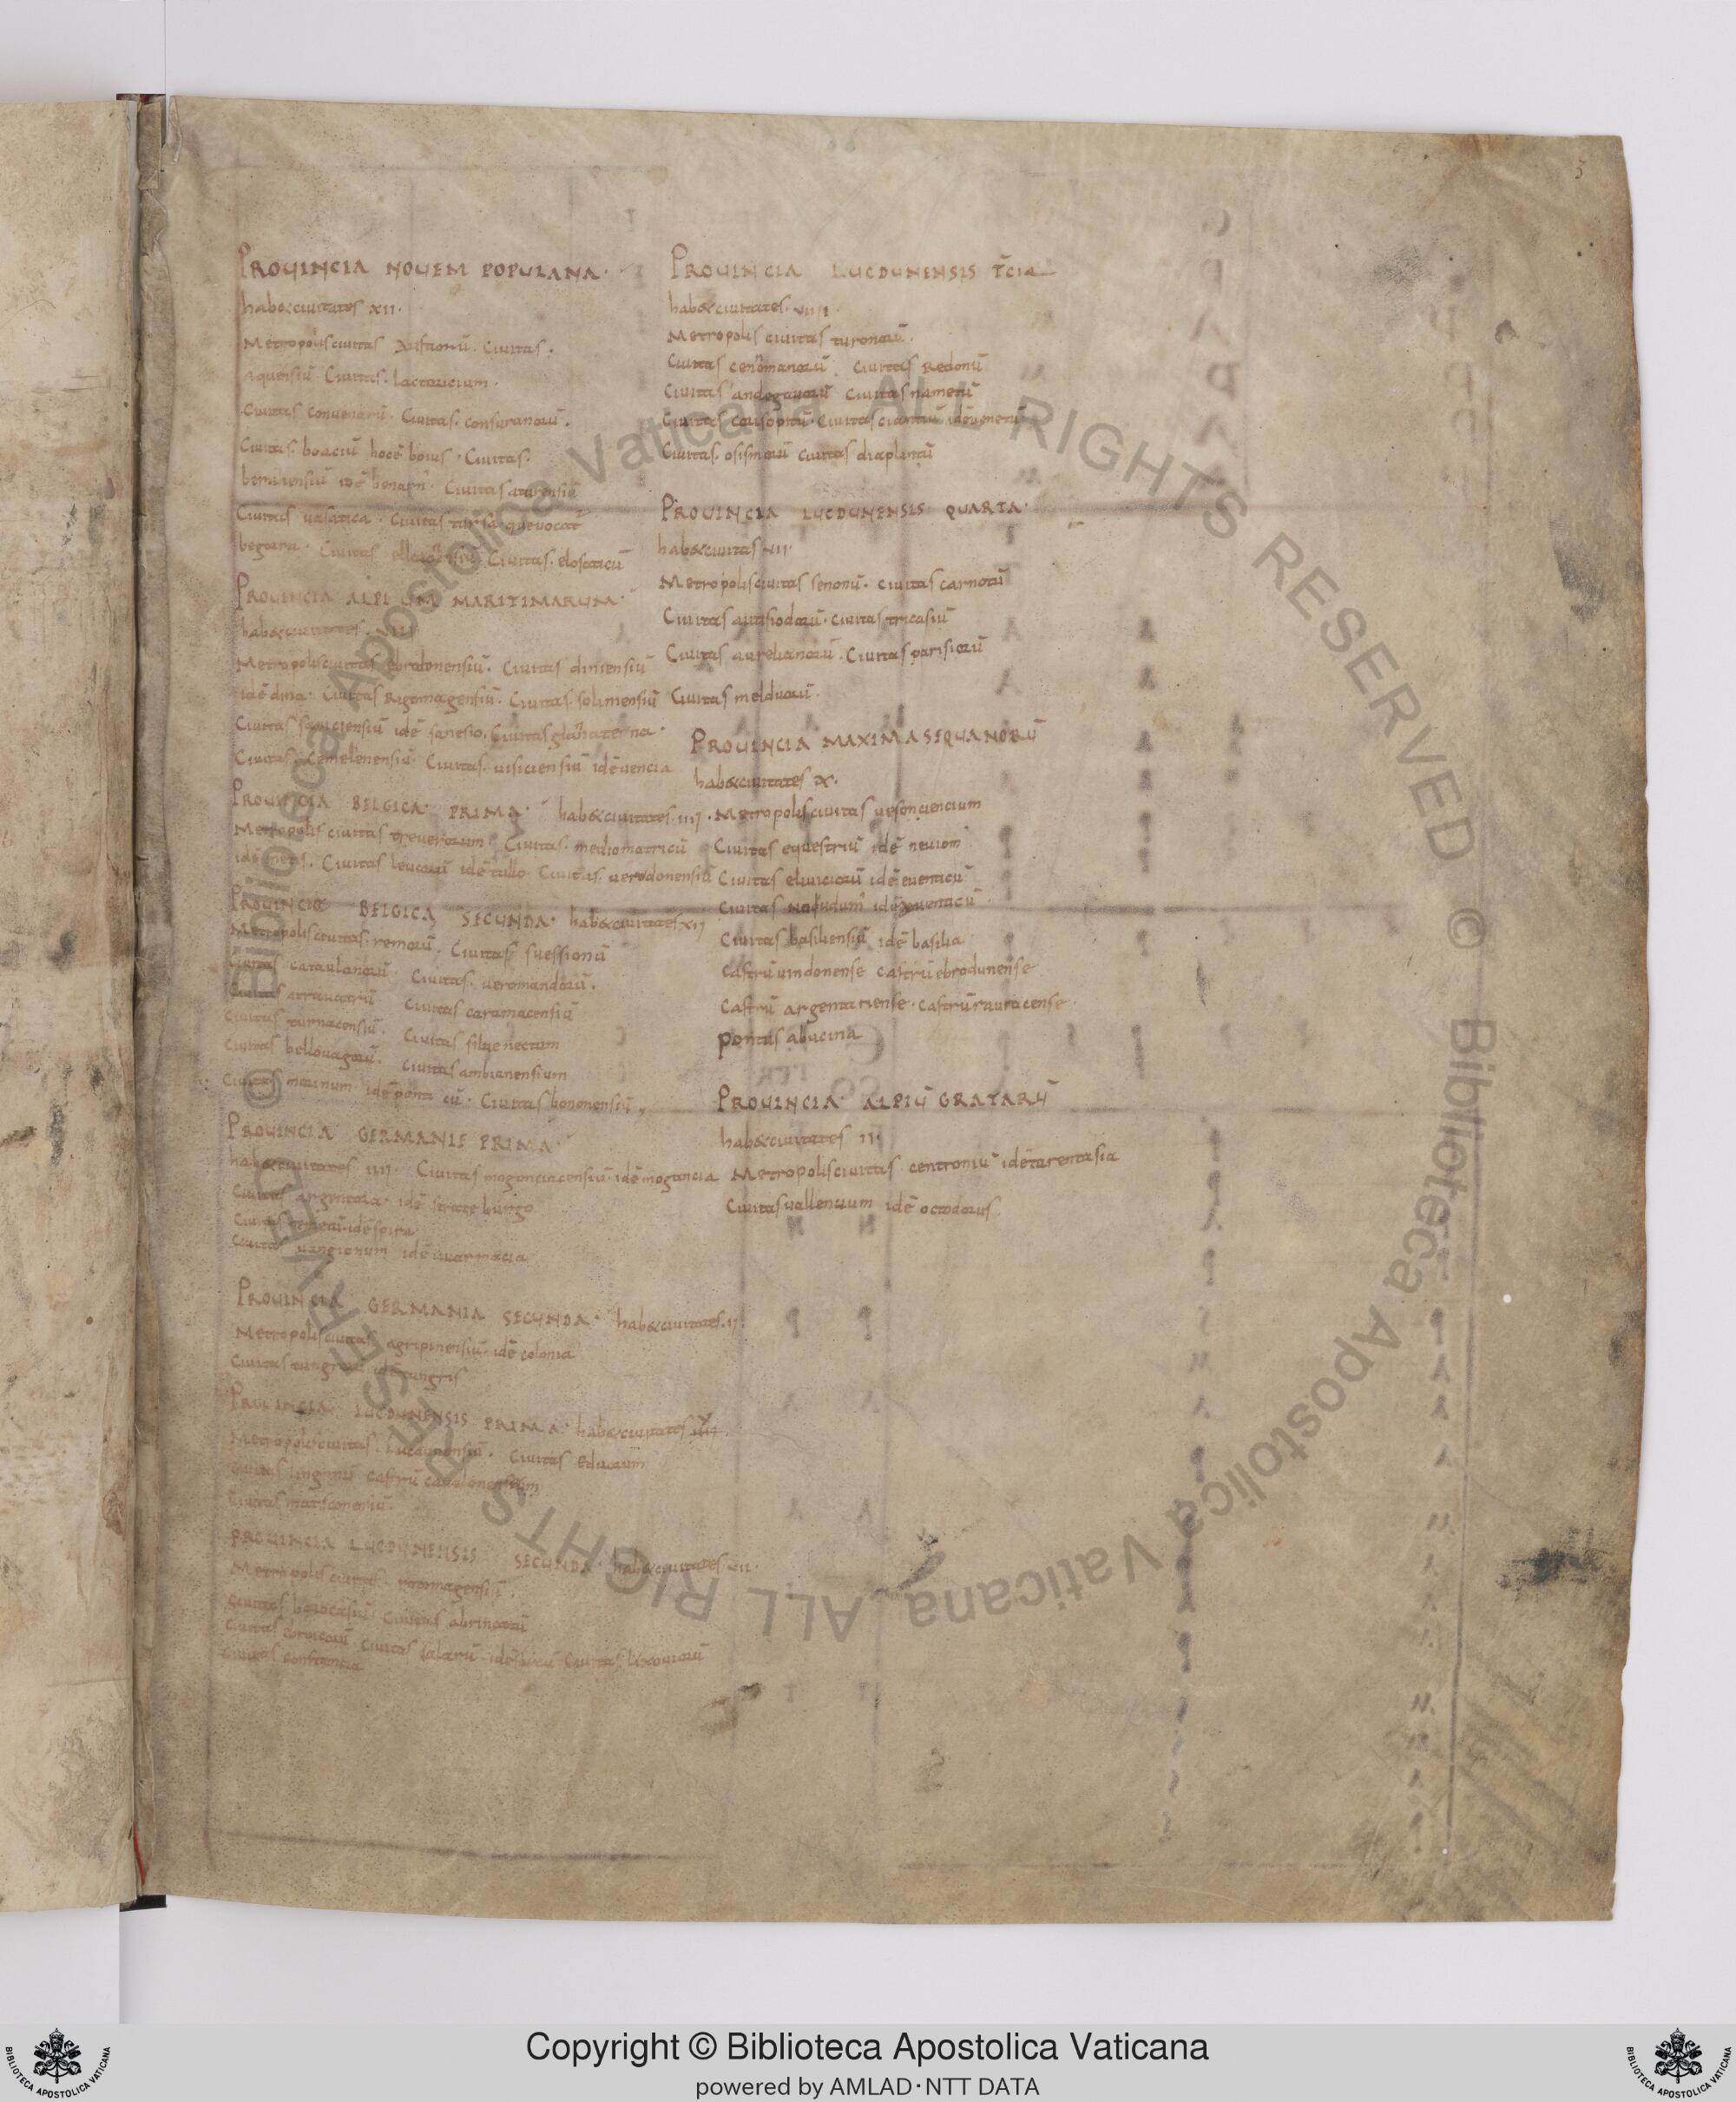 3
PROUINCIA NOUEM POPULANA.
hab&ciuitates XII.
Metropolis ciuitas Ciuitas.
aquensiū Ciuitas. lactoricium.
Ciuitas conuenarū. Ciuitas. consuranorū.
Ciuitas. boaciū hocē boius. Ciuitas.
benarensiū idē benarn. Ciuitas aturensiū
Ciuitas uasatica. Ciuitas tursa. quevocat
begorra. Ciuitas Ciuitas. elosaticū
PROUINCIA ALPIUM MARITIMARUM.
hab&ciuitates. VIII
Metropolisciuitas ebrodonensiū. Ciuitas diniensiū
idē dina. Ciuitas Rigomagensiū. Ciuitas. soliniensiū
Ciuitas sanisiensiū idē sanesio. Ciuitas glannate na.
Ciuitas. Cemelenensiū. Ciuitas. uisiciensiū idēuencia
PROUINCIA BELGICA. PRIMA. hab&ciuitates. IIII.
Metropolis ciuitas treuerorum Ciuitas. mediomatricū
idē metis. Ciuitas leucorū idē tullo. Ciuitas. uerodonensiū
PROUINCIA BELGICA SECUNDA. hab&ciuitates. XII
Metropolisciuitas. remorū. Ciuitas suessionū
Ciuitas catuulanorū Ciuitas. ueromandorū.
Ciuitas Ciuitas camaracensiū
Ciuitas turnacensiū. Ciuitas siluenectum
Ciuitas bellouagorū. Ciuitas ambianensium
Ciuitas morinum idē ponti cū. Ciuitas bononensiū.
PROUINCIA GERMANIE PRIMA.
hab&ciuitates IIII. Ciuitas mogonciacensiū. idē mogoncia
Ciuitas argentora. idē strateburgo
Ciuitas nemetū. idē spira
Ciuitas uangionum idē uuarmacia
PROUINCIA GERMANIA SECUNDA. hab&ciuitates. II
Metropolisciuitas agripinensiū. idē colonia
Ciuitas tungrorū idē tungris
PROUINCIA LUCDUNENSIS PRIMA. hab&ciuitates
Metropolisciuitas. lucdunensiū. Ciuitas eduorum
Ciuitas lingonū castrū cabalonensium
Ciuitas matsconensiū.
PROUINCIA LUCDUNENSIS SECUNDA. hab&ciuitates. VII.
Metropolis ciuitas. rotomagensiū.
Ciuitas baiocasiū. Ciuitas abrincatū
Ciuitas eoroicorū Ciuitas salarū. Ciuitas. lixouiorū
Ciuitas constancia
PROUINCIA LUCDUNENSIS T̄CIA
hab&ciuitates. VIIII.
Metropolis ciuitas turonorū.
Ciuitas cenomanorū. Ciuitas Redonū
Ciuitas andegauorū Ciuitas nametū
Ciuitas corisopitū. Ciuitas idē uenetū
Ciuitas. osismorū ciuitas diaplintū
PROUINCIA LUCDUNENSIS QUARTA.
hab&ciuitas VII.
Metropolisciuitas senonū. Ciuitas carnotū
Ciuitas autisiodorū. ciuitas tricasiū
Ciuitas aurelianorū. Ciuitas parisiorū
Ciuitas melduorū.
PROUINCIA MAXIMA SEQUANORŪ
hab&ciuitates X.
Metropolisciuitas uesonciencium
Ciuitas equestriū idē neuiom
Ciuitas eluiciorū idē euenticū
Ciuitas
Ciuitas basiliensiū idē basilia
Castrū uindonense castrū ebrodunense
Castrū argentariense. castrū rauracense.
portus abucina
PROUINCIA ALPIŪ GRATARŪ
hab&ciuitates II.
Metropolisciuitas centroniū idē tarentasia
Ciuitas uallensium idē octodorus.
Copyright © Biblioteca Apostolica Vaticana
powered by AMLAD·NTT DATA
© Biblioteca Apostolica Vaticana ALL RIGHTS RESERVED © Biblioteca Apostolica Vaticana ALL RIGHTS RESERVED
BIBLIOTECA APOSTOLICA VATICANA
BIBLIOTECA APOSTOLICA VATICANA